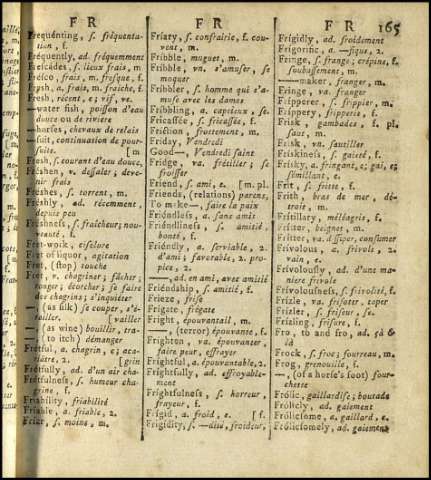 F R
F R
F R
165
Fréquenting, s. fréquenta-
tion, f.
Fréquently, ad. fréquemment
Fréscades, s. lieux frais, m.
Frésco, frais, m. fresque, f.
Fresh, a. frais, m. fraiche, f.
Fresh, récent, e; vif, ve.
—water fish, poisson d'eau
douce ou de riviere
—horses, chevaux de relais
—suit, continuation de pour-
suite, [f. m
Fresh, s. courant d'eau douce,
Fréshen, v. dessaler; deve-
nir frais
Freshes, s. torrent, m.
Fréshly, ad. récemment,
depuis peu
Fréshness, s. fraîcheur; nou-
veauté, f.
Fret-work, ciselure
Fret of liquor, agitation
Fret, (stop) touche
Fret, v. chagriner; fâcher;
ronger; écorcher; se faire
des chagrins; s'inquiéter
— (as silk) se couper, s'é-
railler, [vailler
— (as wine) bouillir, tra-
— (to itch) démanger
Fretful, a. chagrin, e; aca-
riâtre, 2. [grin
Frétfully, ad. d'un air cha-
Fretfulness, s. humeur cha-
grine, f.
Friability, friabilité
Friable, a. friable, 2.
Friar, s. moine, m.
Friary, s. confrairie, f. cou-
vent, m.
Fribble, muguet, m.
Fribble, vn. s'amuser, se
moquer
Fribbler, s. homme qui s'a-
muse avec les dames
Fribbling, a. capcieux, se.
Fricassée, s. fricassée, f.
Friction, frottement, m.
Friday, Vendredi
Good—, Vendredi saint
Fridge, va. frétiller; se
froisser
Friend, s. ami, e. [m. pl.
Friends, (relations) parens,
To make —, faire la paix
Friéndless, a. sans amis
Friéndliness, s. amitié,
bonté, f.
Friéndly, a. serviable, 2.
d'ami; favorable, 2. pro-
pice, 2.
—, ad. en ami, avec amitié
Friéndship, s. amitié, f.
Frieze, frise
Frigate, frégate
Fright, épouvantail, m.
—, (terror) épouvante, f.
Frighten, va. épouvanter,
faire peur, effrayer
Frightful, a. épouvantable, 2.
Frightfully, ad. effroyable-
ment
Frightfulness, s. horreur,
frayeur, f.
Frigid, a. froid, e. [f.
Frigidity, s. —dité, froideur,
Frigidly, ad. froidement
Frigorific, a. —fique, 2.
Fringe, s. frange; crépine, f.
soubassement, m.
—maker, franger, m.
Fringe, va. franger
Fripperer, s. frippier, m.
Frippery, fripperie, f.
Frisk, gambades, f. pl.
saut, m.
Frisk, vn. sautiller
Friskiness, s. gaieté, f.
Frisky, a. fringant, e; gai, e;
sémillant, e.
Frit, s. fritte, f.
Frith, bras de mer, dé-
troit, m.
Fritillary, méléagris, f.
Fritter, beignet, m.
Fritter, va. dissiper, consumer
Frivolous, a. frivole, 2.
vain, e.
Frivolously, ad. d'une ma-
niere frivole
Frivolousness, s. frivolité, f.
Frizle, va. frisoter, taper
Frizler, s. friseur, se.
Frizling, frisure, f.
Fro, to and fro, ad. çà &
là
Frock, s. froc; fourreau, m.
Frog, grenouille, f.
— (of a horse's foot) four-
chette
Frólic, gaillardise; boutade
Frólicly, ad. gaiement
Frólicsome, a. gaillard, e.
Frólicsomely, ad. gaiement